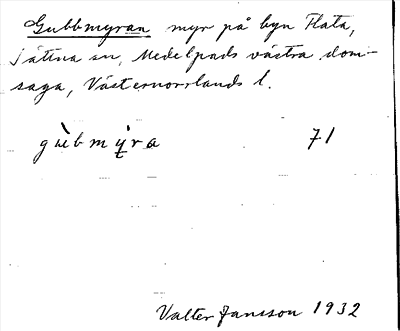 Gubbmyran myr på byn Flata,
j ättna sn, Medelpads västra dom-
saga, Västernorrlands l.
gu̇̀bmẏ̨̀ra 71
Valter Jansson 1932